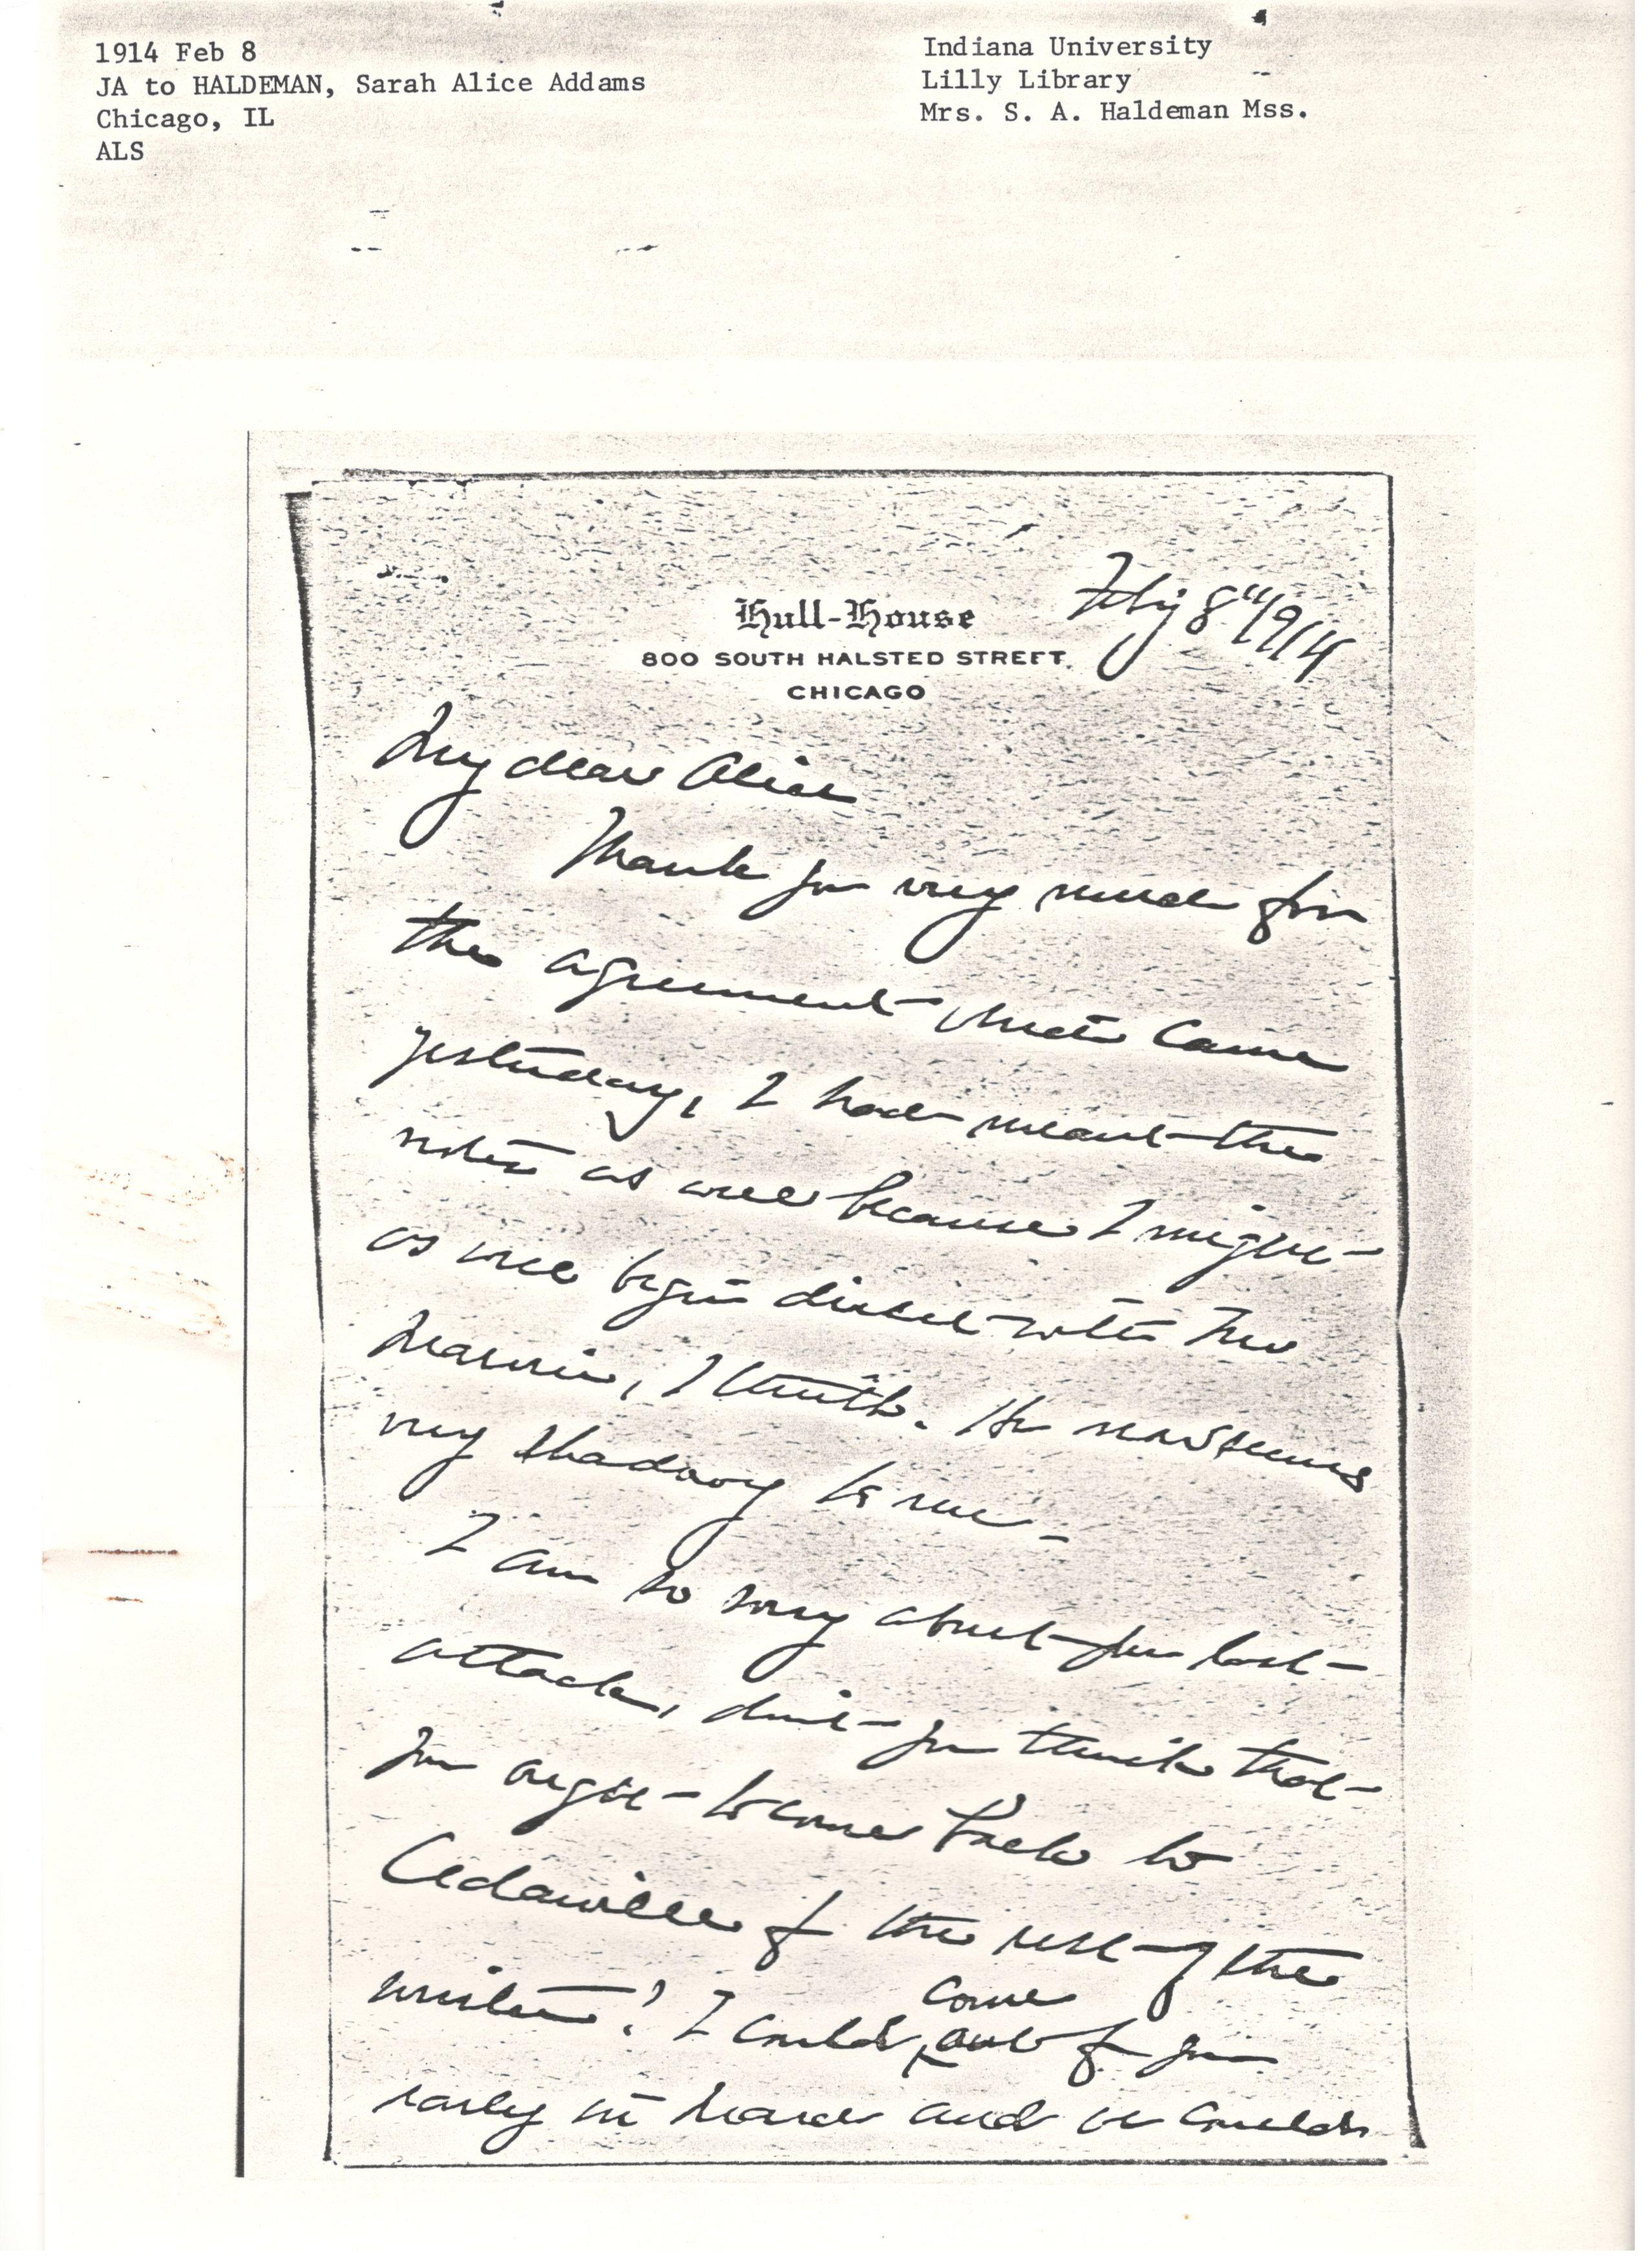 1914 Feb 8
JA to HALDEMAN, Sarah Alice Addams
Chicago, IL
ALS
Indiana University
Lilly Library
Mrs. S. A. Haldeman Mss.
Hull-House
800 SOUTH HALSTED STREET,
CHICAGO
Feby 8" 1914
My dear Alice
Thank you very much for
the agreement which came
yesterday, I had meant the
notes as well because I might
as well begin direct with
I think. He now seems
very shadowy to me -
I am so sorry about your last
attack, don't you think that
you ought to come back to
Cedarville for the rest of the
winter? I could come out for you
early in March and we could